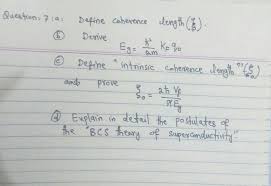 Question: 7: a: Define coherence length (ξ).
(b) Derive
Eg = ħ²/2m KF q0
(c) Define "intrinsic coherence length" (ξ0)
and prove
ξ0 = 2ħ VF / πEg
(d) Explain in detail the postulates of
the "BCS theory of superconductivity"